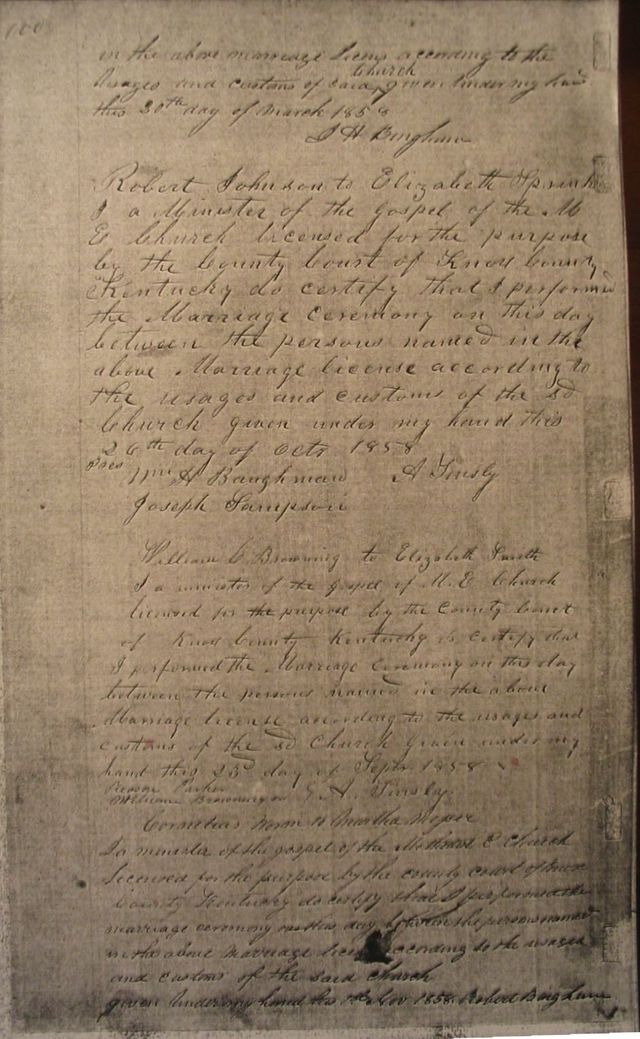 100
in the above marriage License according to the
Usages and customs of said Church given under my hand
this 30th day of March 1858
J H Bingham
Robert Johnson to Elizabeth
I a Minister of the Gospel of the M
E Church licensed for the purpose
by the County Court of Knox County
Kentucky do certify that I performed
the Marriage ceremony on this day
between the persons named in the
above Marriage license according to
the usages and customs of the sd
Church given under my hand this
26th day of Octr 1858
Wm H Baughman A Tinsly
Joseph Sampson
William C Browning to Elizabeth Smith
I a minister of the Gospel of M. E Church
licensed for the purpose by the County Court
of Knox County Kentucky do certify that
I performed the Marriage Ceremony on this day
between the persons named in the above
Marriage license according to the usages and
customs of the sd Church given under my
hand this 23d day of Septr 1858
Parker
William Browning A. Tinsley
Cornelius to Martha
I a minister of the gospel of the Methodist E Church
Licensed for the purpose by the county court of Knox
County Kentucky do certify that I performed the
marriage ceremony on this day between the persons named
in the above marriage License according to the usages
and customs of the said church
given under my hand this Nov 1858 Robert Bingham